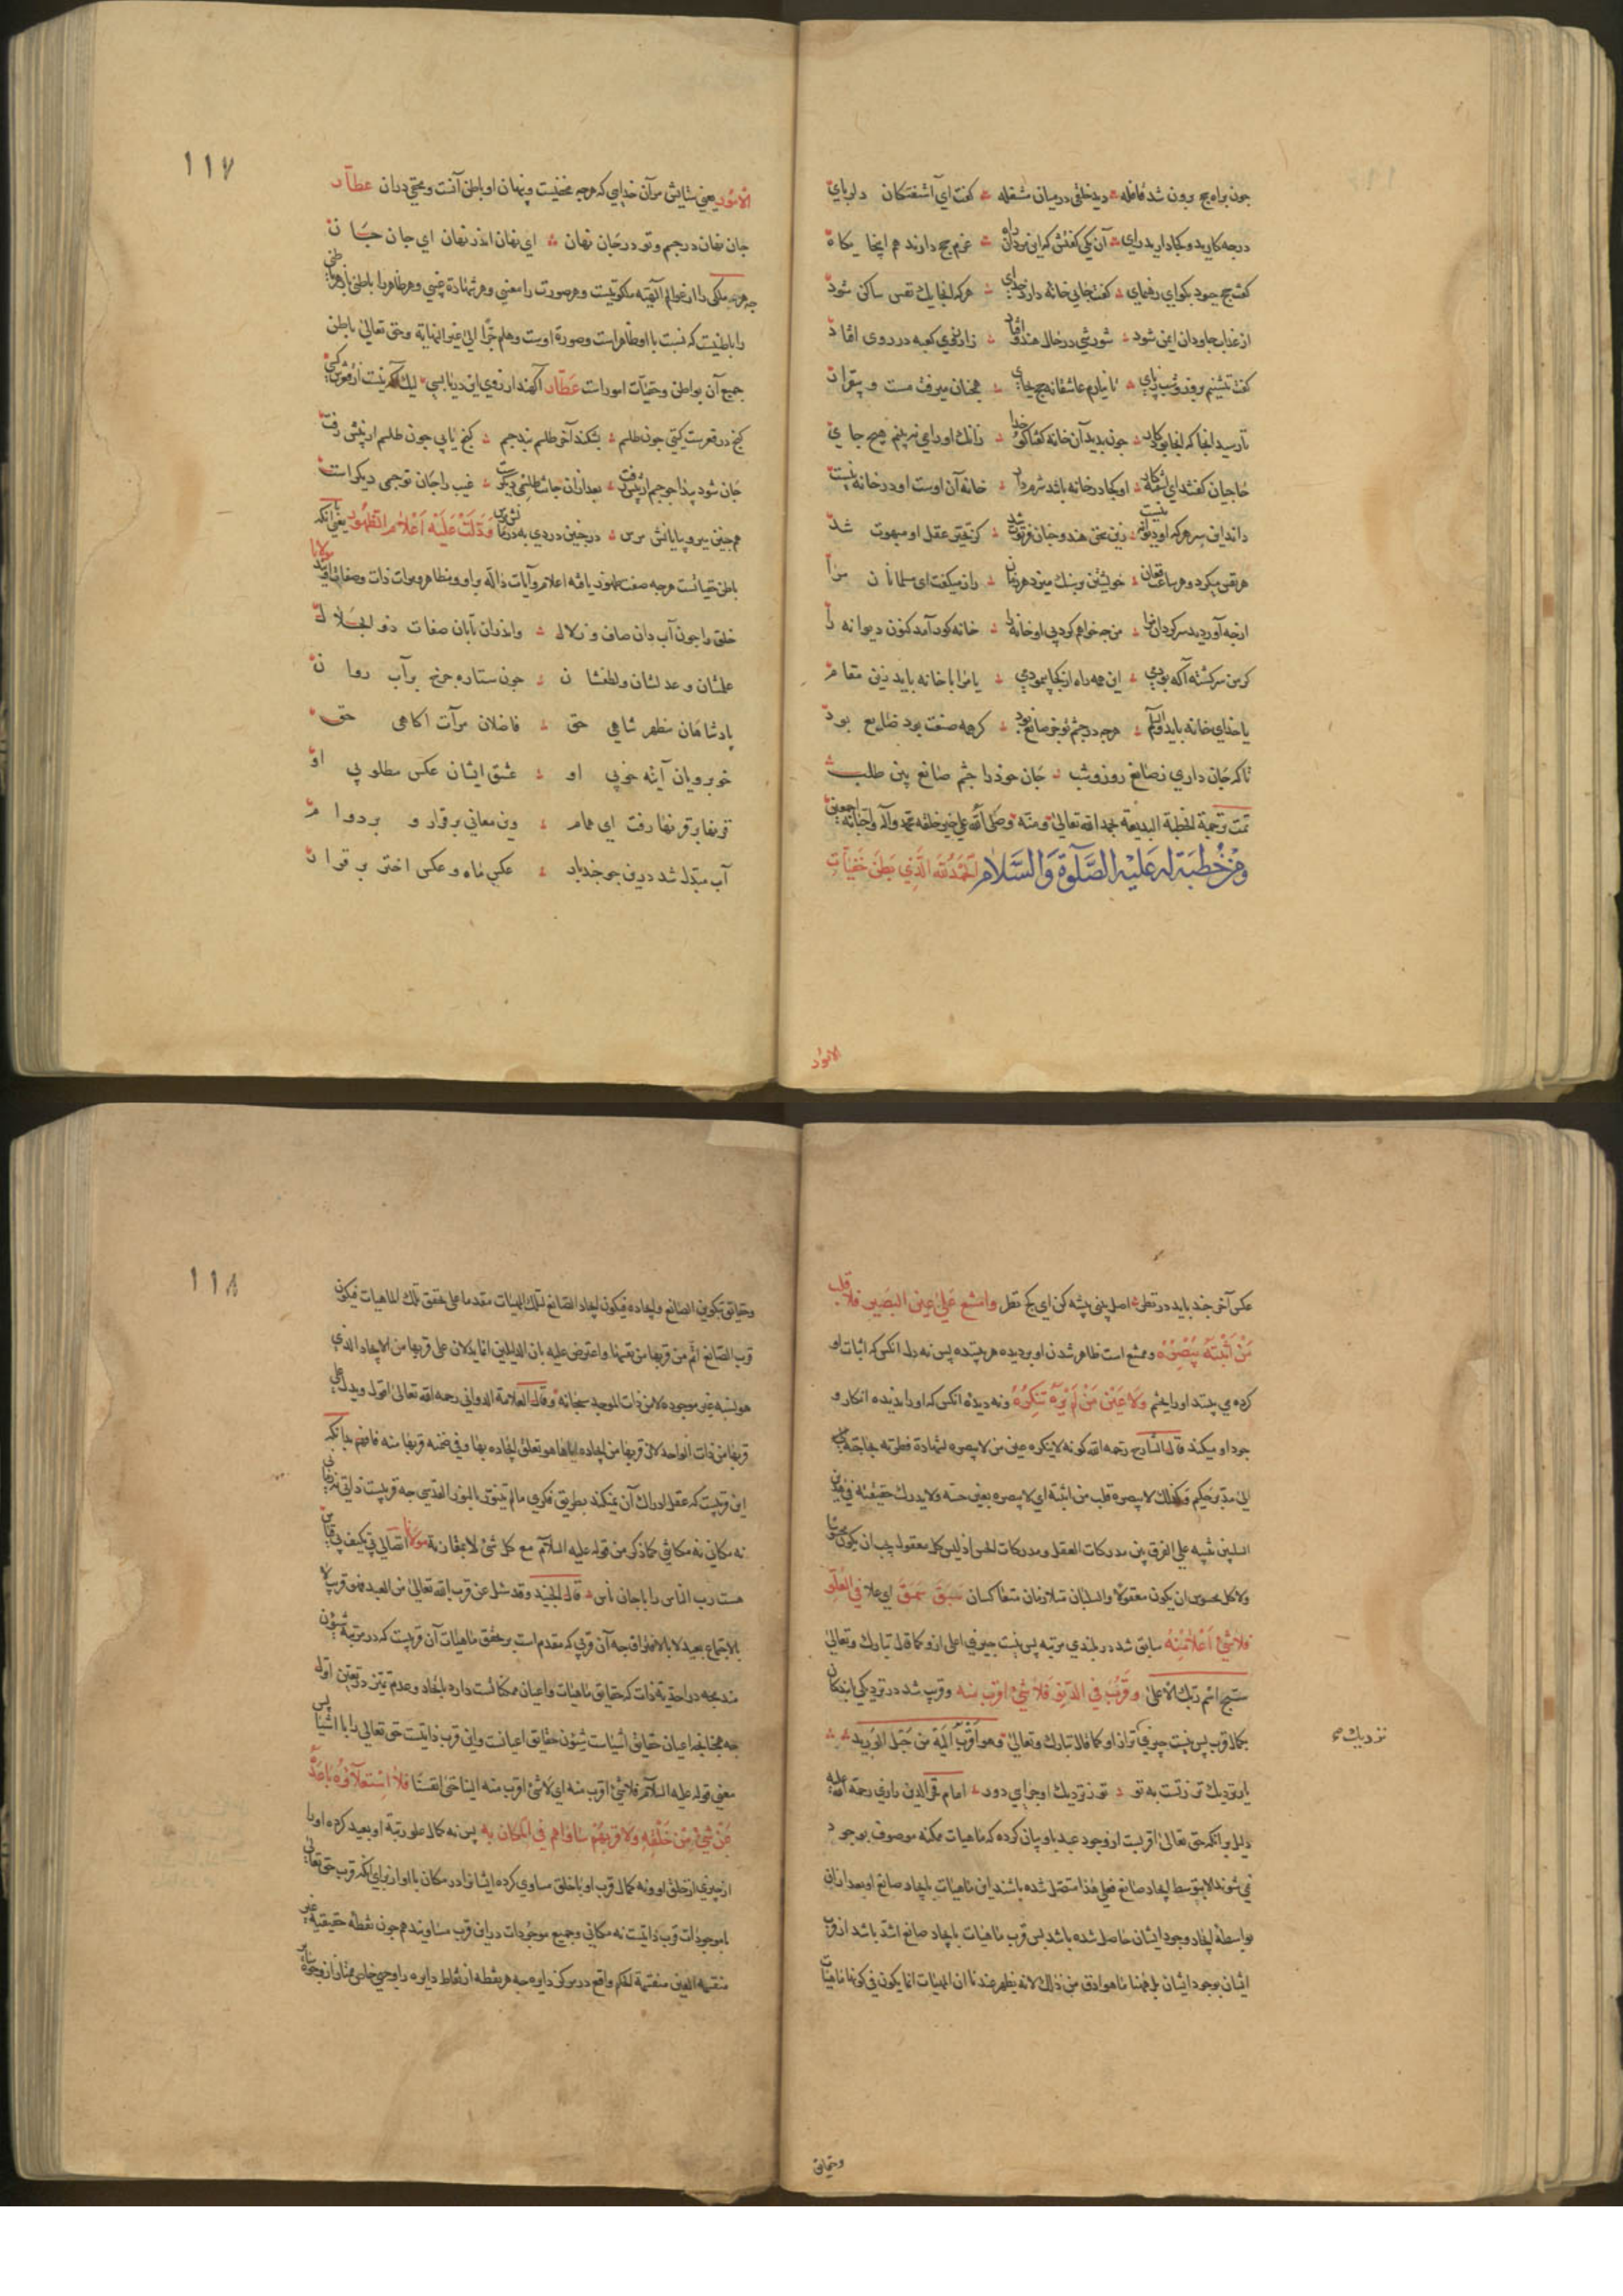 چون براه حج برون شد قافله دید خلقی در میان مشغله گفت ای آشفتگان دلربای
در چه کارید و کجا دارید رای آن یکی گفتش که این مردان راه عزم حج دارند هم اینجا یکاه
گفت حج چبود بکو ای رهنمای گفت جایی خانه دارد خدای هرکه آنجا یک نفس ساکن شود
از عذاب جاودان ایمن شود شورشی در جان هندو فتاد ز آرزوی کعبه در روی افتاد
گفت ننشینم بروز و شب زپای تا نیارم عاشقانه حج بجای همچنان میرفت مست و بیقرار
تا رسید آنجا که آنجا بود کار چون بدید آن خانه گفتا کو خدا زانک او را می نبینم هیچ جای
حاجیان گفتند ای آشفته کار او کجا در خانه باشد شرم دار خانه آن اوست او در خانه نیست
داند این سر هرکه او دیوانه نیست زین سخن هندو چنان فرتوت شد کز تحیر عقل او مبهوت شد
هر نفس میکرد و هر ساعت فغان خویشتن بر سنک میزد هر زمان زار میکفت ای مسلمانان مرا
از چه آوردید سرکردان مرا من چه خواهم کرد بی او خانه را خانه کور آمد کنون دیوانه را
گر من سرکشته آکه بودمی این همه راه از کجا پیمودمی یا مرا با خانه باید زین مقام
یا خدای خانه باید والسلام هرچه در چشم تو جز صانع بود گر همه صنعت بود ضایع بود
تا که جان داری ز صانع روز و شب جان خود را چشم صانع بین طلب
تمت ترجمة الخطبة البدیعة بحمد الله تعالی ومنّه وصلی الله علی خیر خلقه محمد وآله واصحابه اجمعین
ومن خُطبَة له عَلَیْهِ الصَّلوٰة وَالسَّلام الحَمْدُ لله الَّذِی بَطَنَ خَفِیّاتِ
الامور
١١٧
الاُمُور یعنی ستایش مر آن خدایی که هرچه مخفیست و پنهان او باطن آنست و مختفی در آن عطار
جان نهان در جسم و تو در جان نهان ای نهان اندر نهان ای جان جان
چه هر ملکی را از عوالم الهیه ملکوتیست و هر صورت را معنی و هر شهادة غیبی و هر ظاهر را باطنی
را باطنیست که نسبت با او ظاهر است و صورة اوست وهلم جرّا الی غیر النهایة و حق تعالی باطن
جمیع آن بواطن و خفیّات امور است عطّار آکهند از روی این دریا بسی لیک آکه نیست از قعرش کسی
کنج در قعرست کیتی چون طلسم بشکند آخر طلسم بند جسم کنج یابی چون طلسم از پیش رفت
جان شود پیدا چو جسم از پیش رفت بعد از آن جانت طلسمی دیکر است غیب را جان تو جسمی دیکر است
همچنین میرو بپایانش مپرس در چنین دردی بدرمانش مپرس وَدَلَّتْ عَلَیْهِ اَعْلامُ الظُّهُور یعنی با آنکه
باطن خفیاتست هرچه صفت ظهور یافته اعلام و آیات دالّه بر او و مظاهر و مرات ذات و صفات اویند مولانا
خلق را چون آب دان صاف و زلال واندر آن تابان صفات ذو الجلال
علمشان و عدلشان و لطفشان چون ستاره چرخ بر آب روان
پادشاهان مظهر شاهی حق فاضلان مرآت آکاهی حق
خوبرویان آینه خوبی او عشق ایشان عکس مطلوبی او
قرنها بر قرنها رفت ای همام وین معانی برقرار و بر دوام
آب مبدل شد درین جو چند بار عکس ماه و عکس اختر برقرار
عکس آخر چند باید در نظر اصل بینی پیشه کن ای کج نظر وَامْتَنَعَ عَلیٰ عَیْنِ البَصِیرِ فَلا قَلْبُ
مَنْ اَثْبَتَهُ یُبْصِرُهُ و ممتنع است ظاهر شدن او بر دیده هر بیننده پس نه دل آنکس که اثبات او
کرده می بیند او را بچشم وَلا عَیْنُ مَنْ لَمْ یَرَهُ تُنْکِرُهُ و نه دیده آنکس که او را ندیده انکار و
جود او میکند قال الشارح رحمه الله کونه لا ینکره عین من لا یبصره لشهادة فطرته بحاجته
الی مدبر حکیم وکذلک لا یبصره قلب من اثبته ای لا یبصره بعین حسه ولا یدرک حقیقته
السلبین تنبیه علی الفرق بین مدرکات العقل ومدرکات الحس اذ لیس کل معقول یجب ان یکون محسوسا
ولا کل محسوس ان یکون معقولا والسلبان متلازمان متعاکسان سَبَقَ سَمَقَ ای علا فِی العُلُوِّ
فَلا شَیْءَ اَعْلا مِنْهُ سابق شد در بلندی مرتبه پس نیست چیزی اعلی ازو کما قال تبارک وتعالی
سبّح اسم ربّک الاعلی وَقَرُبَ فِی الدُّنُوِّ فَلا شَیْءَ اَقْرَبُ مِنْهُ و قریب شد در نزدیکی با بندکان
بکمال قرب پس نیست چیزی نزدیک تر از او کما قال تبارک وتعالی وهو اَقْرَبُ اِلَیْهِ مِنْ حَبْلِ الوَرِید
نزدیک صح
یار نزدیک تر زتست به تو تو ز نزدیک او چرایی دور امام فخر الدین رازی رحمة الله علیه
دلیل بر آنکه حق تعالی اقربست از وجود عبد باو بیان کرده که ماهیات ممکنه موصوف بوجود
نمی شوند الا بتوسط ایجاد صانع فعلی هذا متصل شده باشند این ماهیات بایجاد صانع او بعد از آن
بواسطۀ ایجاد وجود ایشان حاصل شده باشد پس قرب ماهیات بایجاد صانع اشد باشد از قرب
ایشان بوجود ایشان بل ههنا ما هو ادق من ذلک لانه یظهر عندنا ان المهیات انما یکون فی کونها ماهیات
وحقایق
١١٨
وحقایق بتکوین الصانع وایجاده فیکون ایجاد الصانع لتلک المهیات مقدما علی تحقق تلک الماهیات فیکون
قرب الصانع اتم من قربها من نفسها واعترض علیه بان الدلیلین انما یدلان علی قربها من الایجاد الذی
هو نسبة غیر موجودة لا من ذات الموجد سبحانه وقال العلامة الدوانی رحمه الله تعالی اقول ویدل علی
قربها من ذات الواحد لان قربها من ایجاده ایاها هو تعلق ایجاده بها وفی ضمنه قربها منه فافهم بدانکه
این قربیست که عقل ادراک آن نمیکند بطریق فکری مالم یتنور بالنور القدسی چه قربیست ذاتی نه زمانی
نه مکانی نه مکانتی کما ذکر من قوله علیه السلام مع کل شئ لا بمقارنة مولانا اتصالی بی تکیف بی قیاس
هست رب الناس را با جان ناس قال الجنید وقد سئل عن قرب الله تعالی من العبد فقال قریب لا
بالاجتماع بعید لا بالافتراق چه آن قربی که مقدم است بر تحقق ماهیات آن قربیست که در مرتبه شؤن
مندمجه در احدیة ذات که حقایق ماهیات و اعیان ممکناتست دارد باتحاد و عدم تمیز در تعین اول
چه همچنانچه اعیان حقایق اشیاست شئون حقایق اعیانست و این قرب ذاتیست حق تعالی را با اشیا پس
معنی قوله علیه السلام فلا شئ اقرب منه ای لا شئ اقرب منه الینا حتی انفسنا فَلا اسْتِعْلاؤُهُ بَاعَدَهُ
عَنْ شَیْءٍ مِنْ خَلْقِهِ وَلا قُرْبُهُ سَاوَاهُمْ فِی المَکَانِ بِهِ پس نه کمال علو رتبة او بعید کرده او را
از چیزی از خلق او و نه کمال قرب او با خلق مساوی کرده ایشانرا در مکان با او از برای آنکه قرب حق تعالی
با موجودات قرب ذاتیست نه مکانی و جمیع موجودات در این قرب مساویند همچون نقطه حقیقیه غیر
منقسمة العین منقسمة الحکم واقع در مرکز دایره چه هر نقطه از نقاط دایره را وجهی خاص ممتاز از وجوه سایر